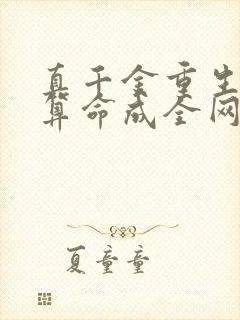 真千金重生
算命成全网
夏童童